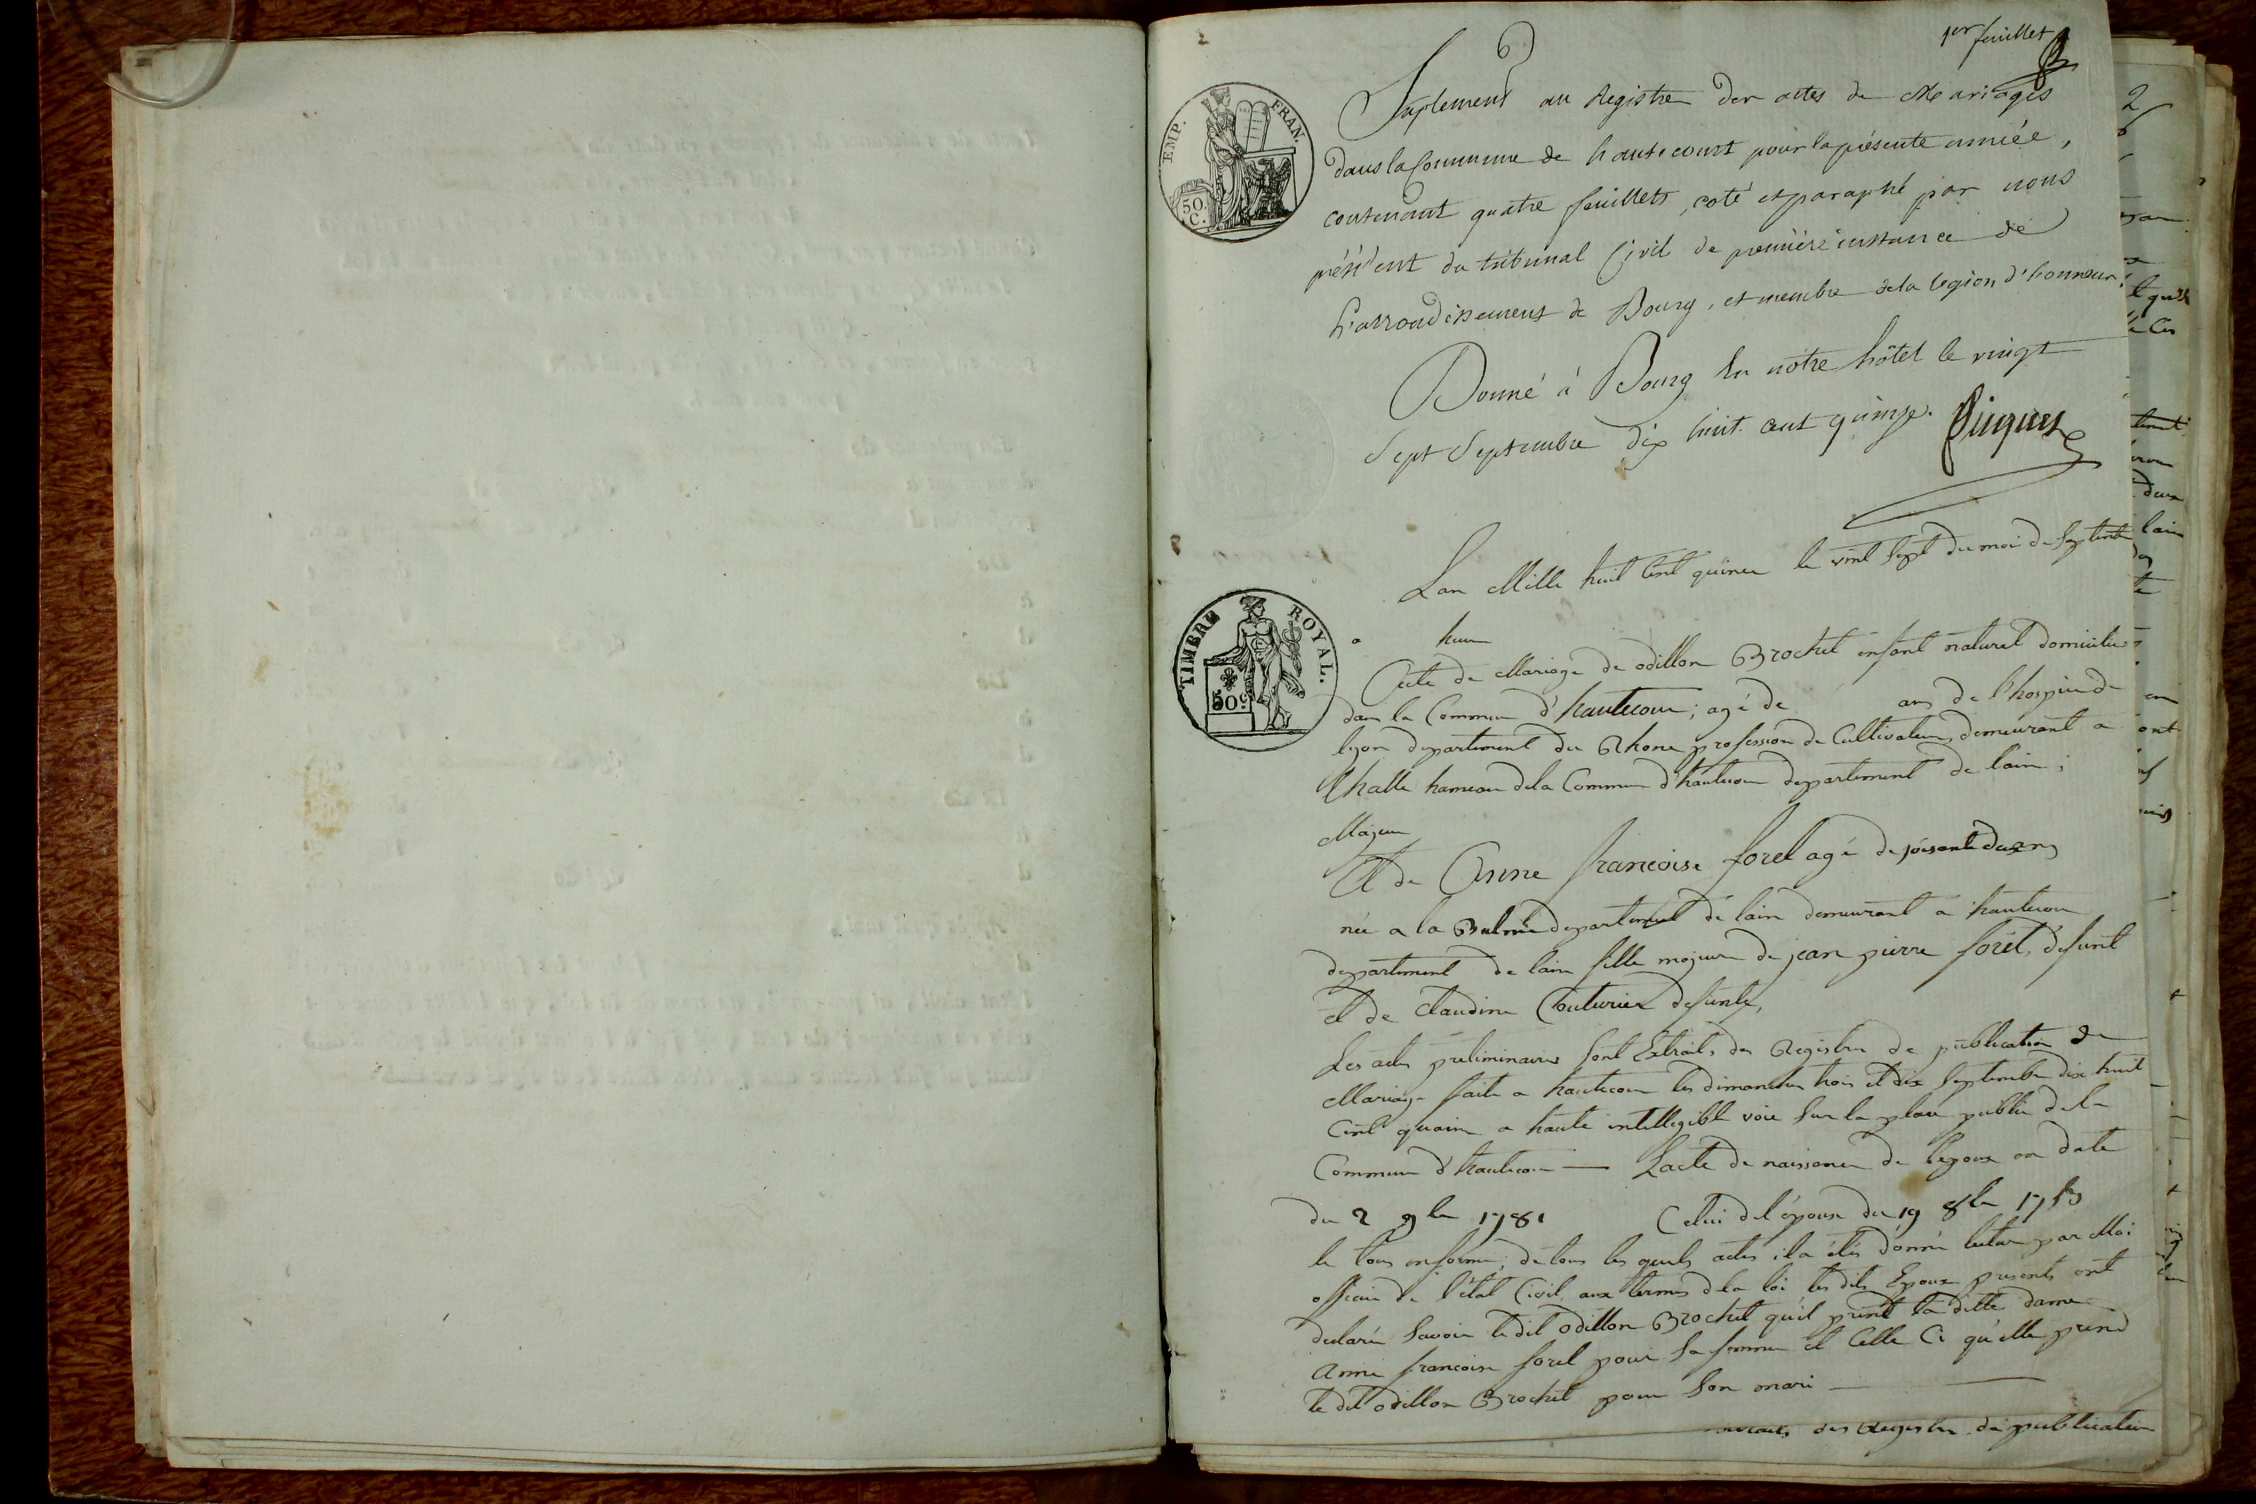 1er feuillet
6
Suplement au Registre des actes de Mariages
dans la Commune de hautecourt pour la présente année,
contenant quatre feuillets, coté et paraphé par nous
président du tribunal Civil de première instance de
L'arrondissement de Bourg, et membre de la légion d'honneur.
Donné à Bourg En nôtre hôtel le vingt
Sept Septembre dix huit cent quinze.
EMP. FRAN.
50.
C.
TIMBRE ROYAL.
50c
Lan Mille huit Cent quinze le vint Sept du moi de Septembre
a heure
Acte de Mariage de odillon Brochet enfant naturel domicilié
dans la Commune d'hautecour; agé de ans de l'hospice de
lyon departement du Rhone profession de Cultivateur, demeurant a
Challe hameau de la Commune d'hautecour departement de lain;
Majeur
Et de Anne francoise forel agé de soisante deux ans
née a la Balme departement de lain demeurant a hautecour
departement de lain fille majeure de jean pierre forêt, defunt
et de Claudine Couturier defunte,
Les actes preliminaires Sont Extraits des Registre de publication de
Mariage faite a hautecour les dimanches trois et dix Septembre dix huit
Cent quainze a haute intelligible voie Sur la place publie de la
Commune d'hautecour — Lacte de naissance de l'epoux en date
du 2 9bre 1781 Celui de l'épouse du 19 8bre 1753
le tous en forme; de tous les quels actes il a étés donné lecture par Moi
officier de l'état Civil aux termes de la loi les dits Epoux presents ont
declaré Savoir le dit odillon Brochet qu'il prend la ditte dame
Anne francoise forel pour Sa femme et Celle Ci qu'elle prend
le dit odillon Brochet pour Son mari —
des Registre de publication
2